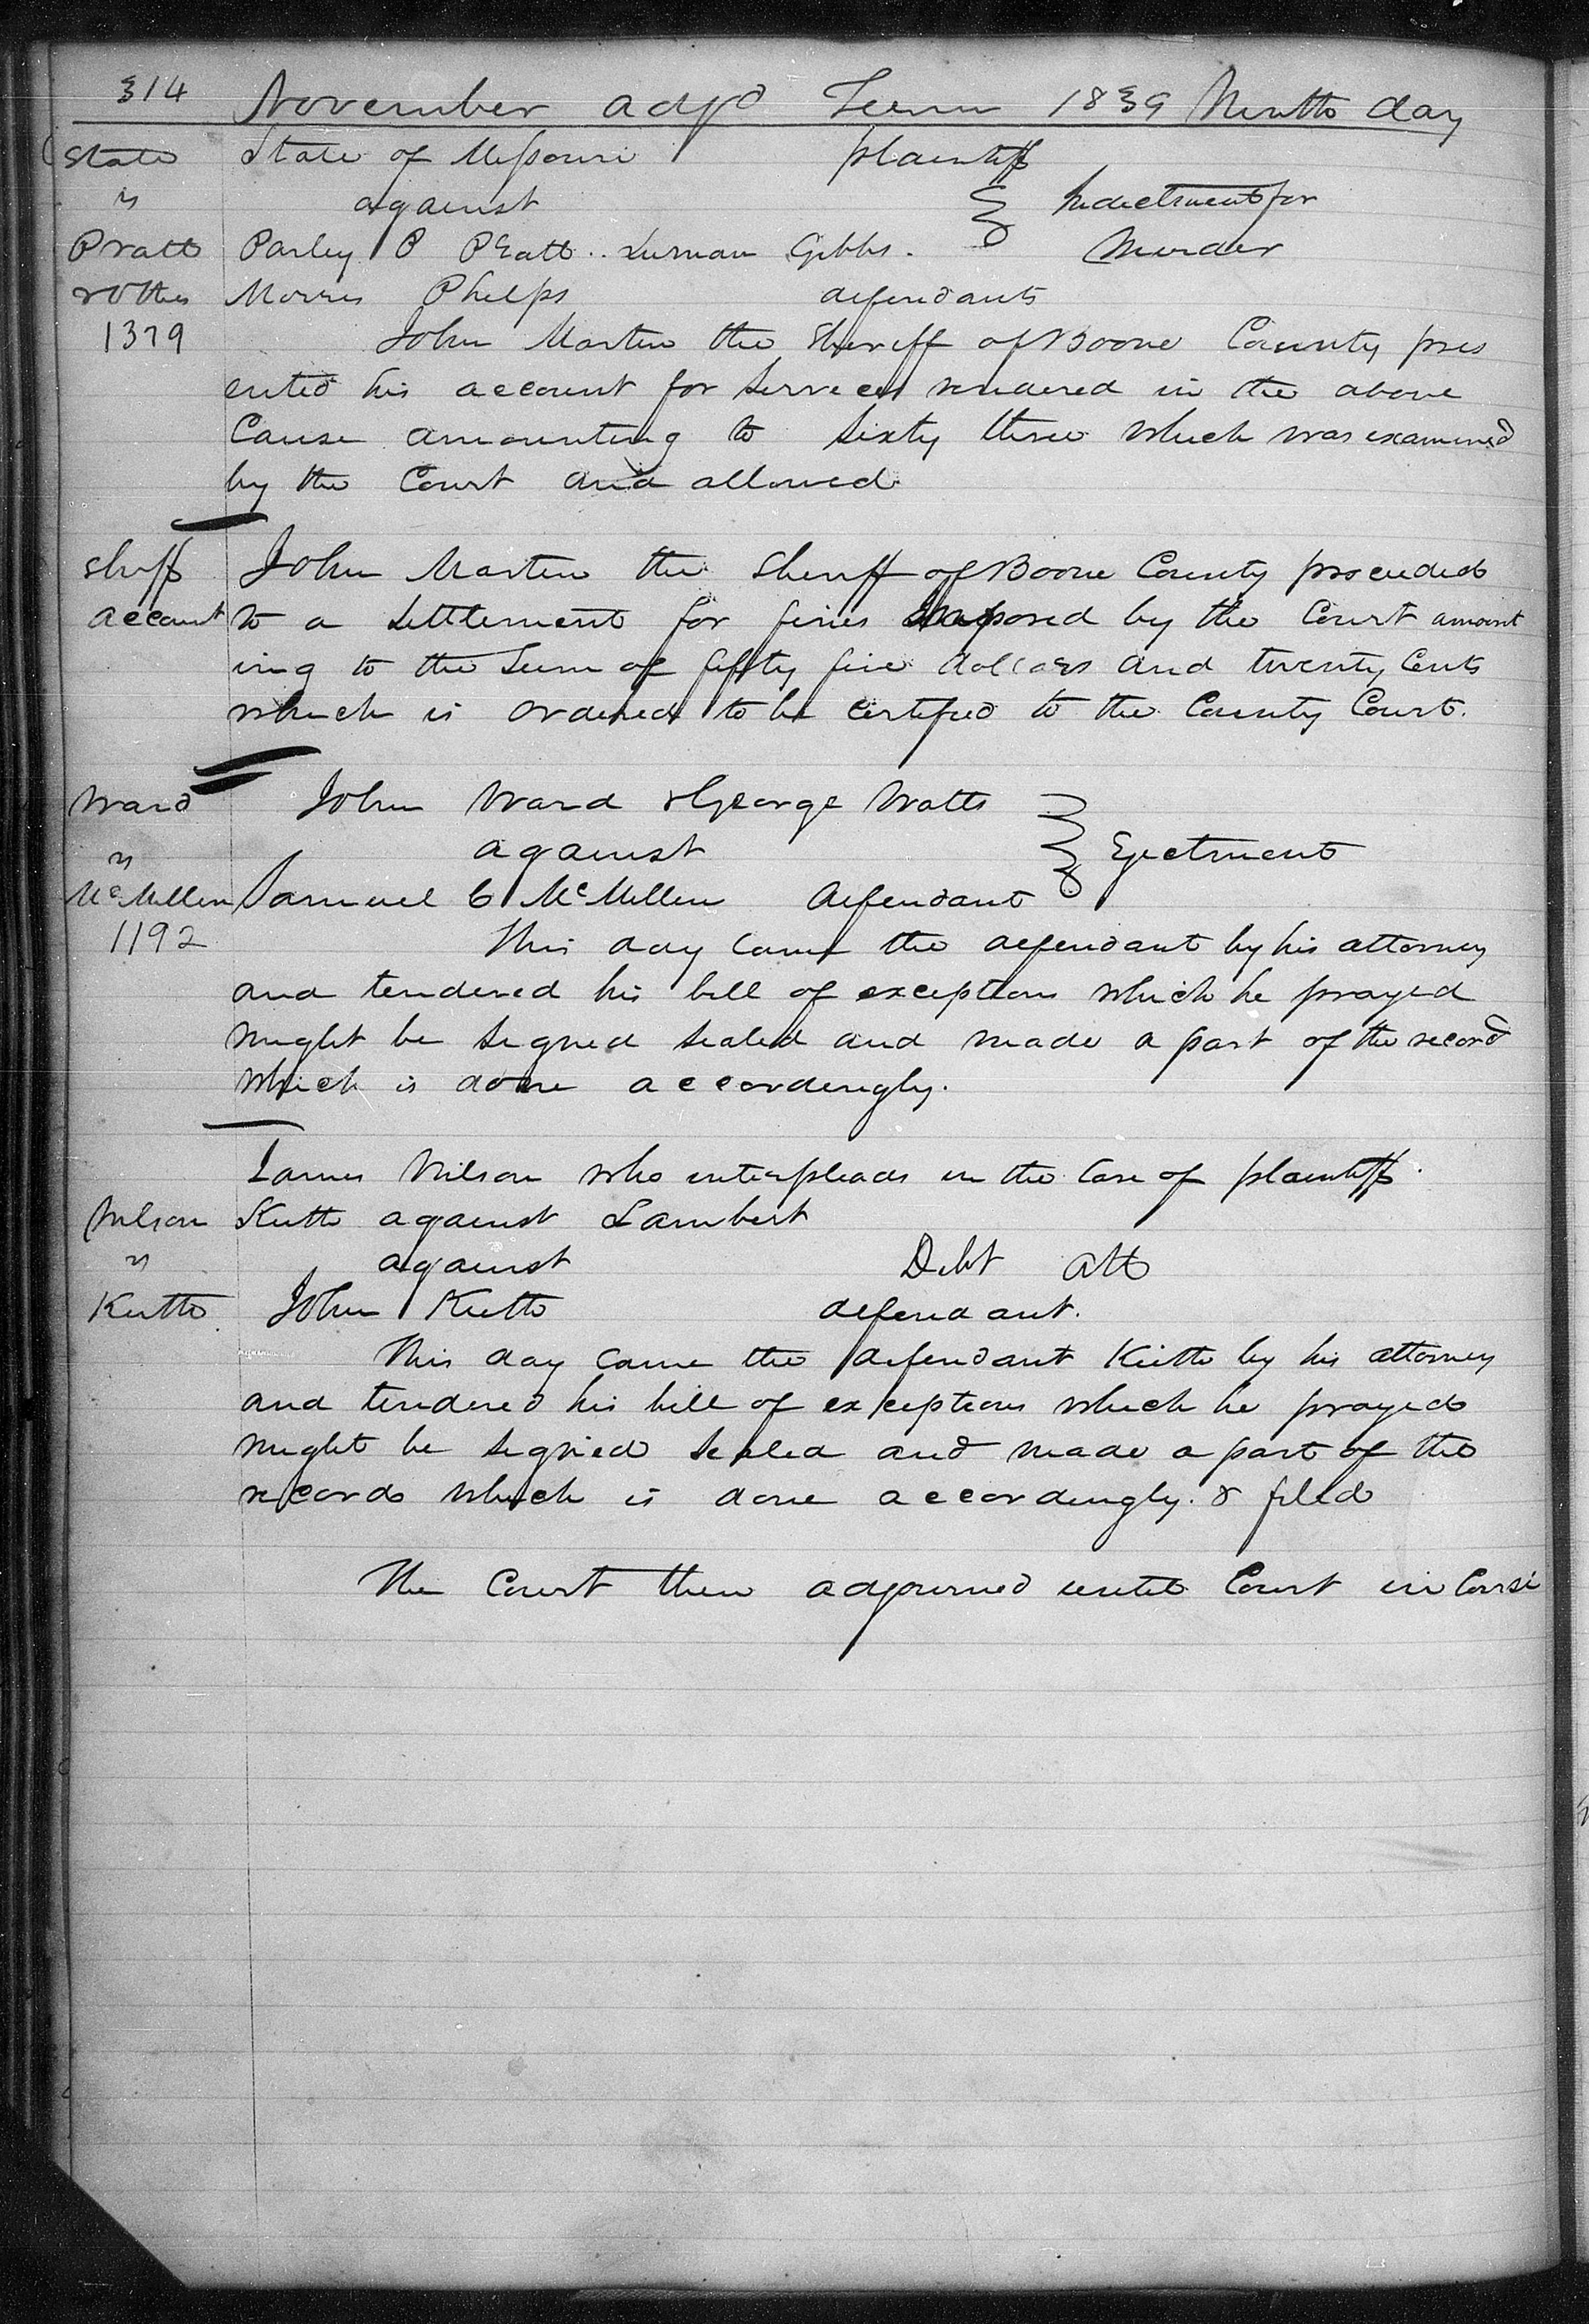 314 November adjd Term 1839 Ninth day
State State of Missouri plaintiff
vs against Indictment for
Pratt Parley P Pratt .. Lurman Gibbs . Murder
& Others Morris Phelps defendants
1379 John Martin the Sheriff of Boone County pres
ented his account for Services rendered in the above
Cause amounting to Sixty three which was examined
by the Court and allowed
Shff John Martin the Sheriff of Boone County proceeded
account to a Settlement for fines imposed by the Court amount
ing to the Sum of fifty five dollars and twenty Cents
which is ordered to be certified to the County Court.
Ward John Ward & George Watts
vs against Ejectment
McMillen Samuel C McMillen defendant
1192 This day came the defendant by his attorney
and tendered his bill of exceptions which he prayed
might be signed sealed and made a part of the record
which is done accordingly.
James Wilson who interpleads in the Case of plaintiff.
Wilson Kitto against Lambert
vs against Debt att
Kitto John Kitto defendant.
This day came the defendant Kitto by his attorney
and tendered his bill of exceptions which he prayed
might be signed sealed and made a part of the
records which is done accordingly. & filed
The Court then adjourned until Court in Coursé